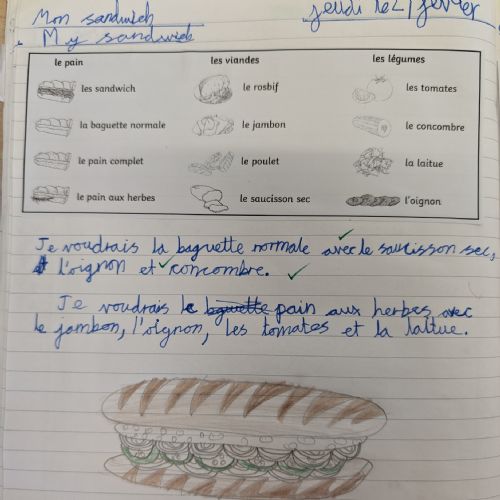 Mon sandwich
jeudi le 27 février
My sandwich
le pain les viandes les légumes
les sandwich le rosbif les tomates
la baguette normale le jambon le concombre
le pain complet le poulet la laitue
le pain aux herbes le saucisson sec l'oignon
Je voudrais la baguette normale avec le saucisson sec,
l'oignon et concombre.
Je voudrais le baguette pain aux herbes avec
le jambon, l'oignon, les tomates et la laitue.